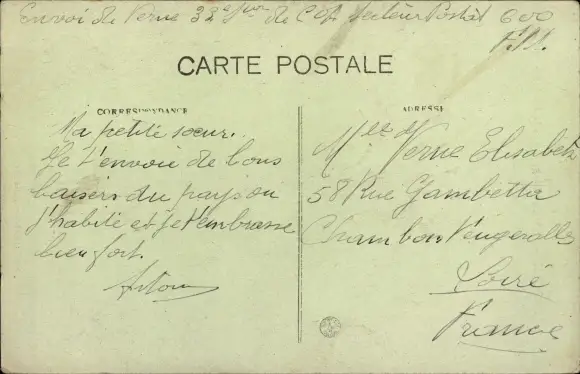 Envoi de Verne 22e de C Secteur Postal 600
F.M.
CARTE POSTALE
CORRESPONDANCE
Ma petite sœur.
Je t'envoie de bons
baisers du pays ou
j'habite et je t'embrasse
bien fort.
ADRESSE
Mlle Verne Elisabeth
58 Rue Gambetta
Chambon Feugerolles
Loire
France